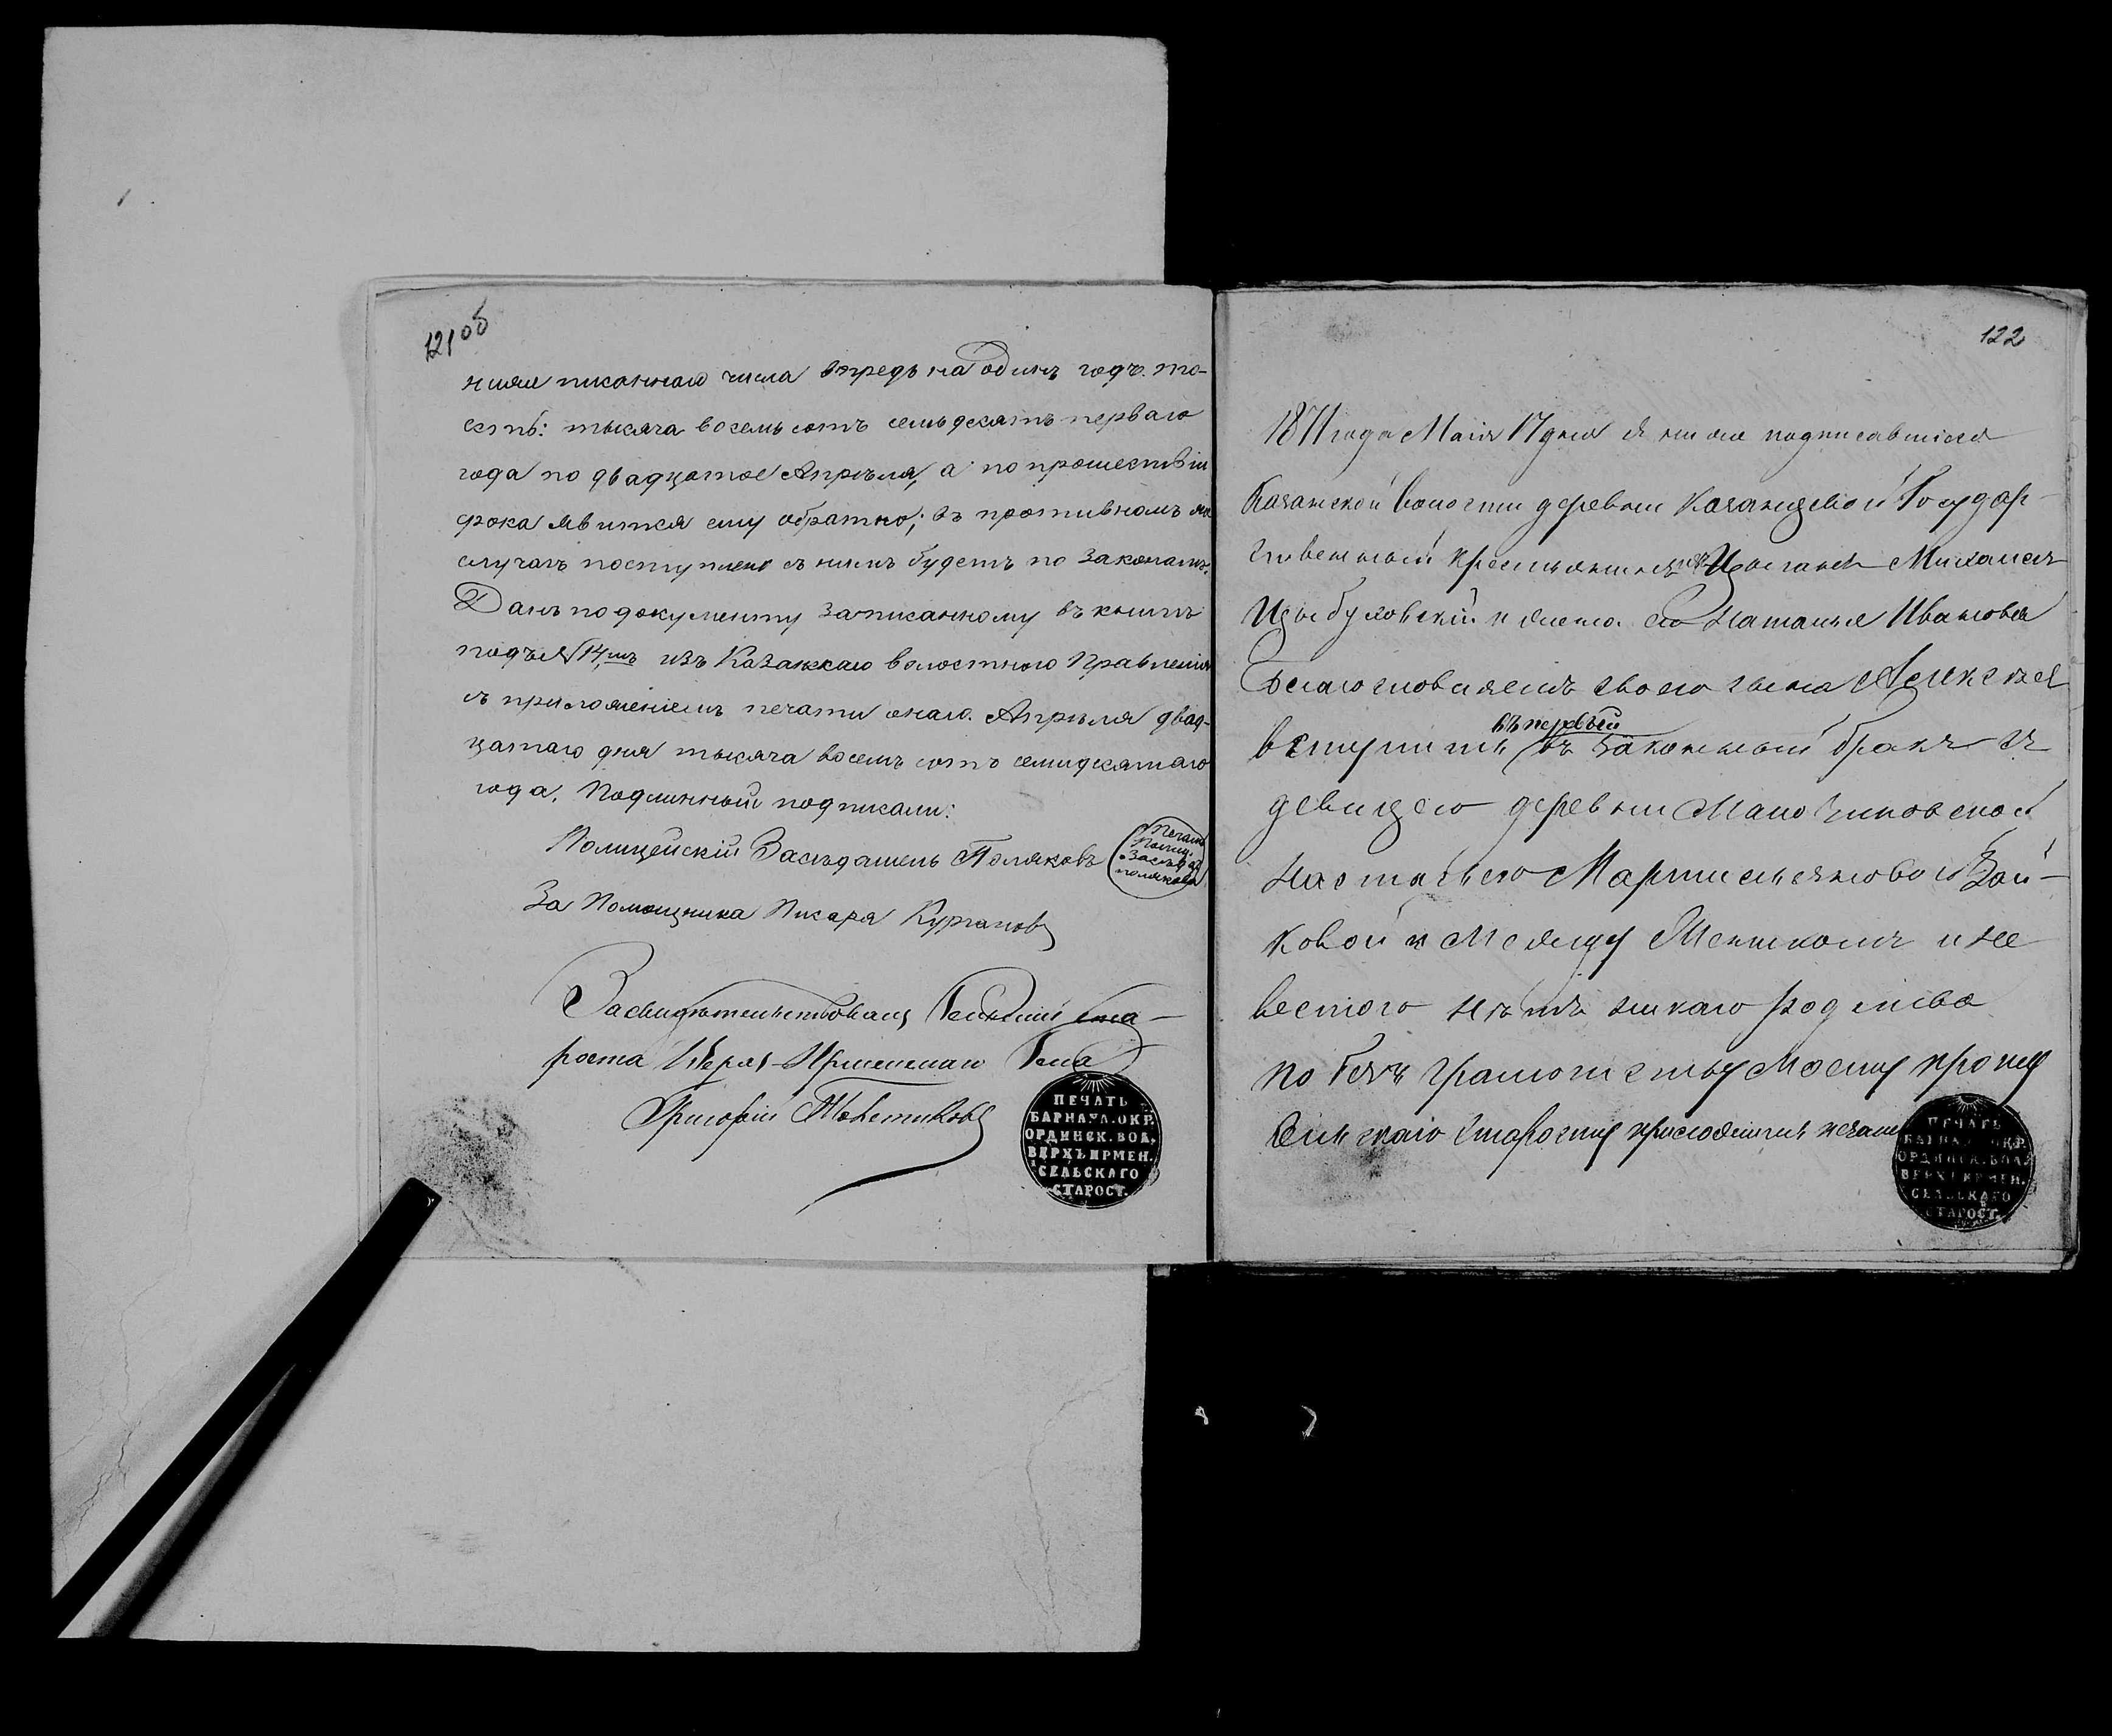 121 об
ниже писаннаго числа впредь на один годъ. то-
есть: тысяча восемь сотъ семьдесятъ перваго
года по двадцатое Апрѣля, а по прошествіи
срока явится ему обратно; въ противномъ же
случаѣ поступлено съ нимъ будетъ по законамъ.
Данъ по документу записанному въ книгѣ
подъ № 14.мъ изъ Казанскаго волостного Правленія
съ приложеніемъ печати онаго. Апрѣля двад-
цатаго дня тысяча восемь сотъ семидесятаго
года. Подлинный подписали:
Полицейскій Засѣдатель Поляковъ
Печать
Полиц.
Засѣдат.
Полякова
За Помощника Писаря Кургановъ
Засвидѣтельствовалъ Сельскій ста-
роста Верхъ-Ирменскаго Села
Григорій
ПЕЧАТЬ
БАРНАУЛ. ОКР.
ОРДИНСК. ВОЛ.
ВЕРХЪ ИРМЕН.
СЕЛЬСКАГО
СТАРОСТ.
122
1871 года Маія 17 дня я ниже подписавшійся
Казанской волости деревни Казанцевой Государ-
ственный крестьянинъ изъ Михаилъ
Цыбуловскій и жена его Наталья Иванова
благословляемъ своего сына Алексея
въ первый
вступить въ законный бракъ съ
девицею деревни
Настасьею Зай-
ковой и Между Женихомъ и не
вестою нѣтъ никаго родства
по безъ грамотству моему прошу
Сельскаго Старосту приложить печать
ПЕЧАТЬ
БАРНАУЛ. ОКР.
ОРДИНСК. ВОЛ.
ВЕРХЪ ИРМЕН.
СЕЛЬСКАГО
СТАРОСТ.